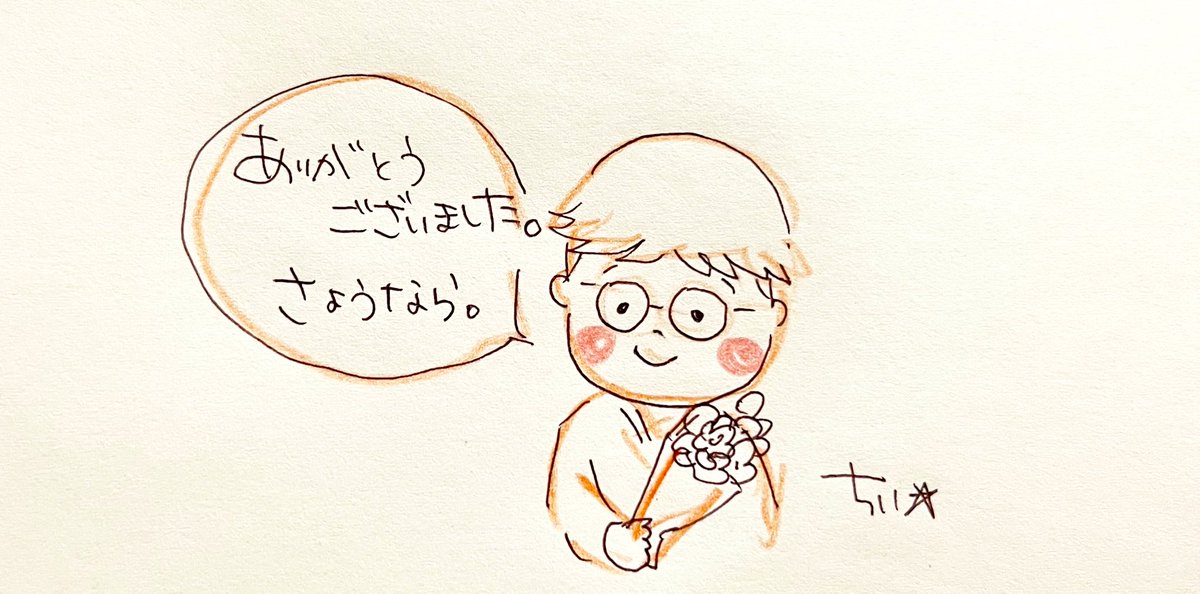 ありがとう
ございました。
さようなら。
ちい☆